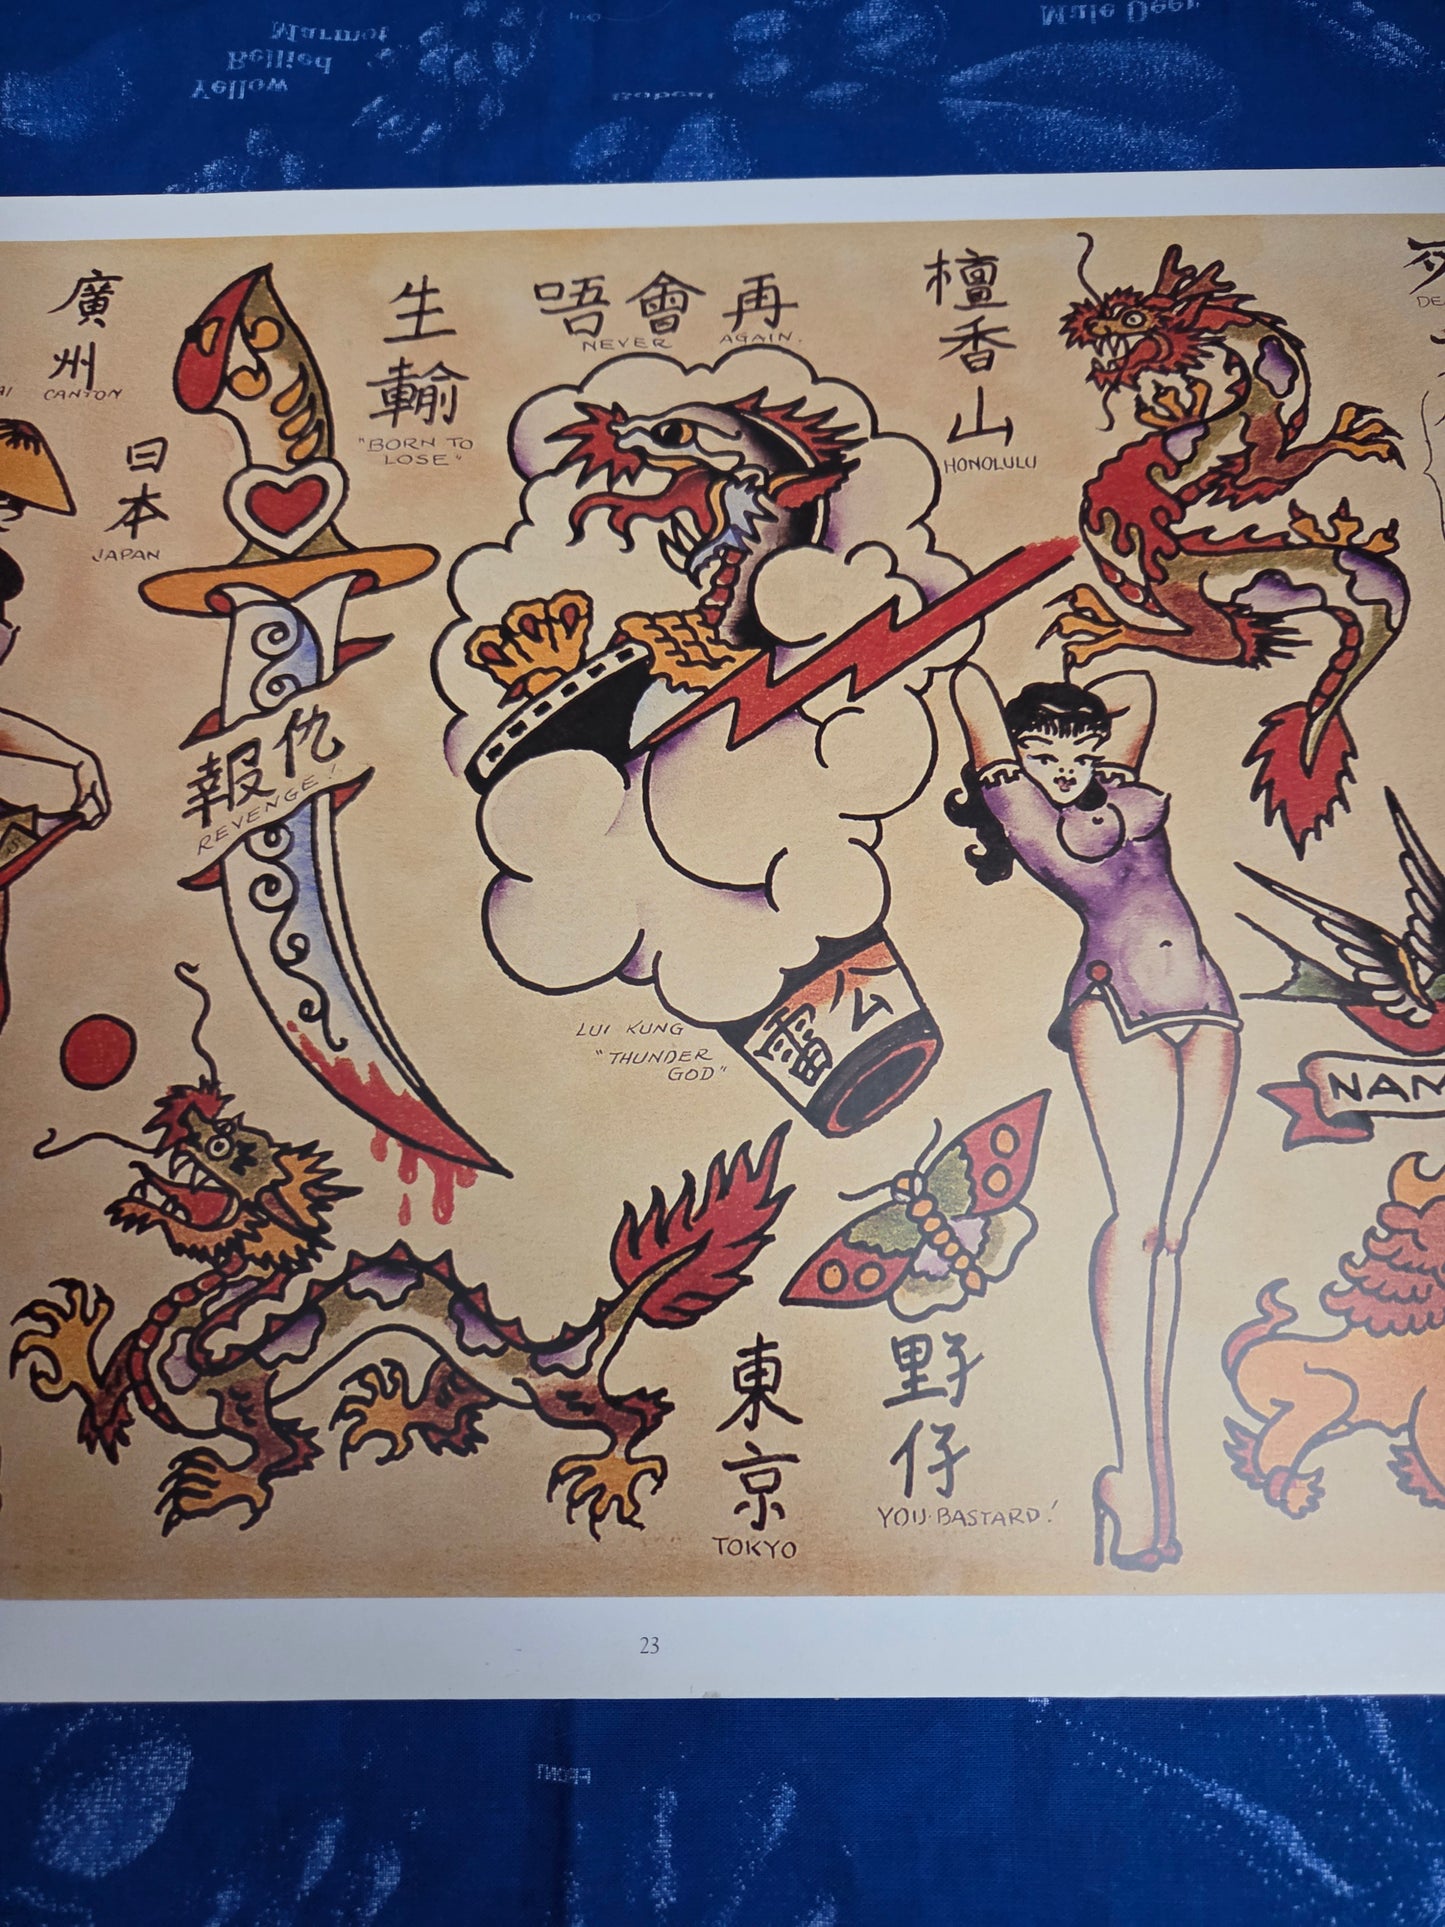 Marmot
Bellied
Yellow
Male Deer
Bobcat
廣
州
CANTON
日
本
JAPAN
生
輸
"BORN TO
LOSE"
唔會再
NEVER AGAIN.
檀
香
山
HONOLULU
報仇
REVENGE!
LUI KUNG
"THUNDER
GOD"
雷公
NAM
東
京
TOKYO
野
仔
YOU BASTARD!
23